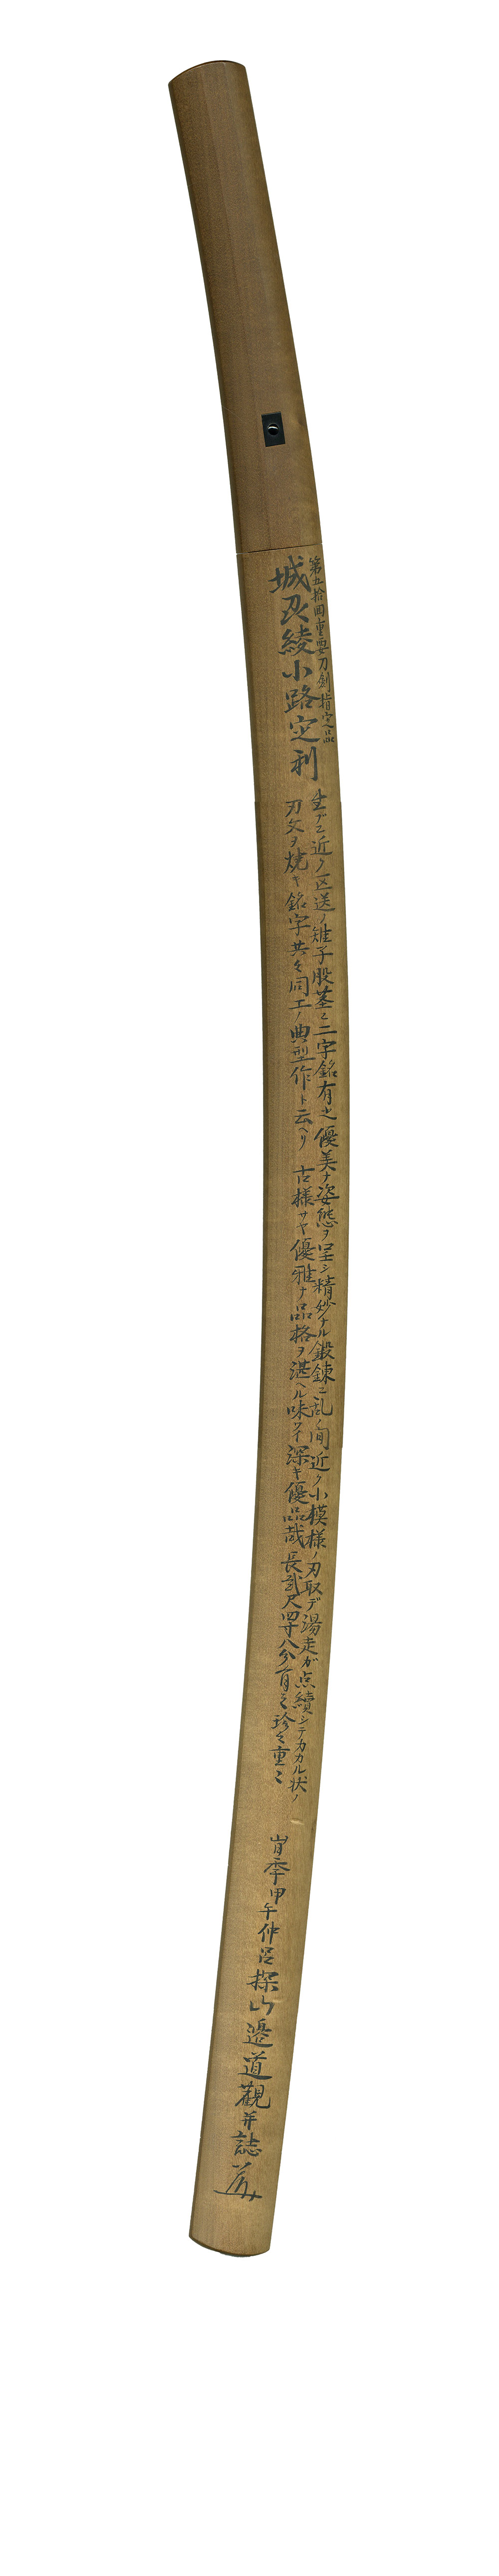 第五拾回重要刀剣指定品
城刕綾小路定利
生ブニ近ク区送ノ雉子股茎ニ二字銘有之優美ナ姿態ヲ呈シ精妙ナル鍛錬ニ乱ノ間近ク小模様ノ刃取デ湯走ガ点續シテカカル状ノ
刃文ヲ焼キ銘字共々同工ノ典型作ト云ヘリ 古様サヤ優雅ナ品格ヲ湛ヘル味ワイ深キ優品哉 長貳尺四寸八分有之珍々重々
旹季甲午仲呂探山邉道觀并誌